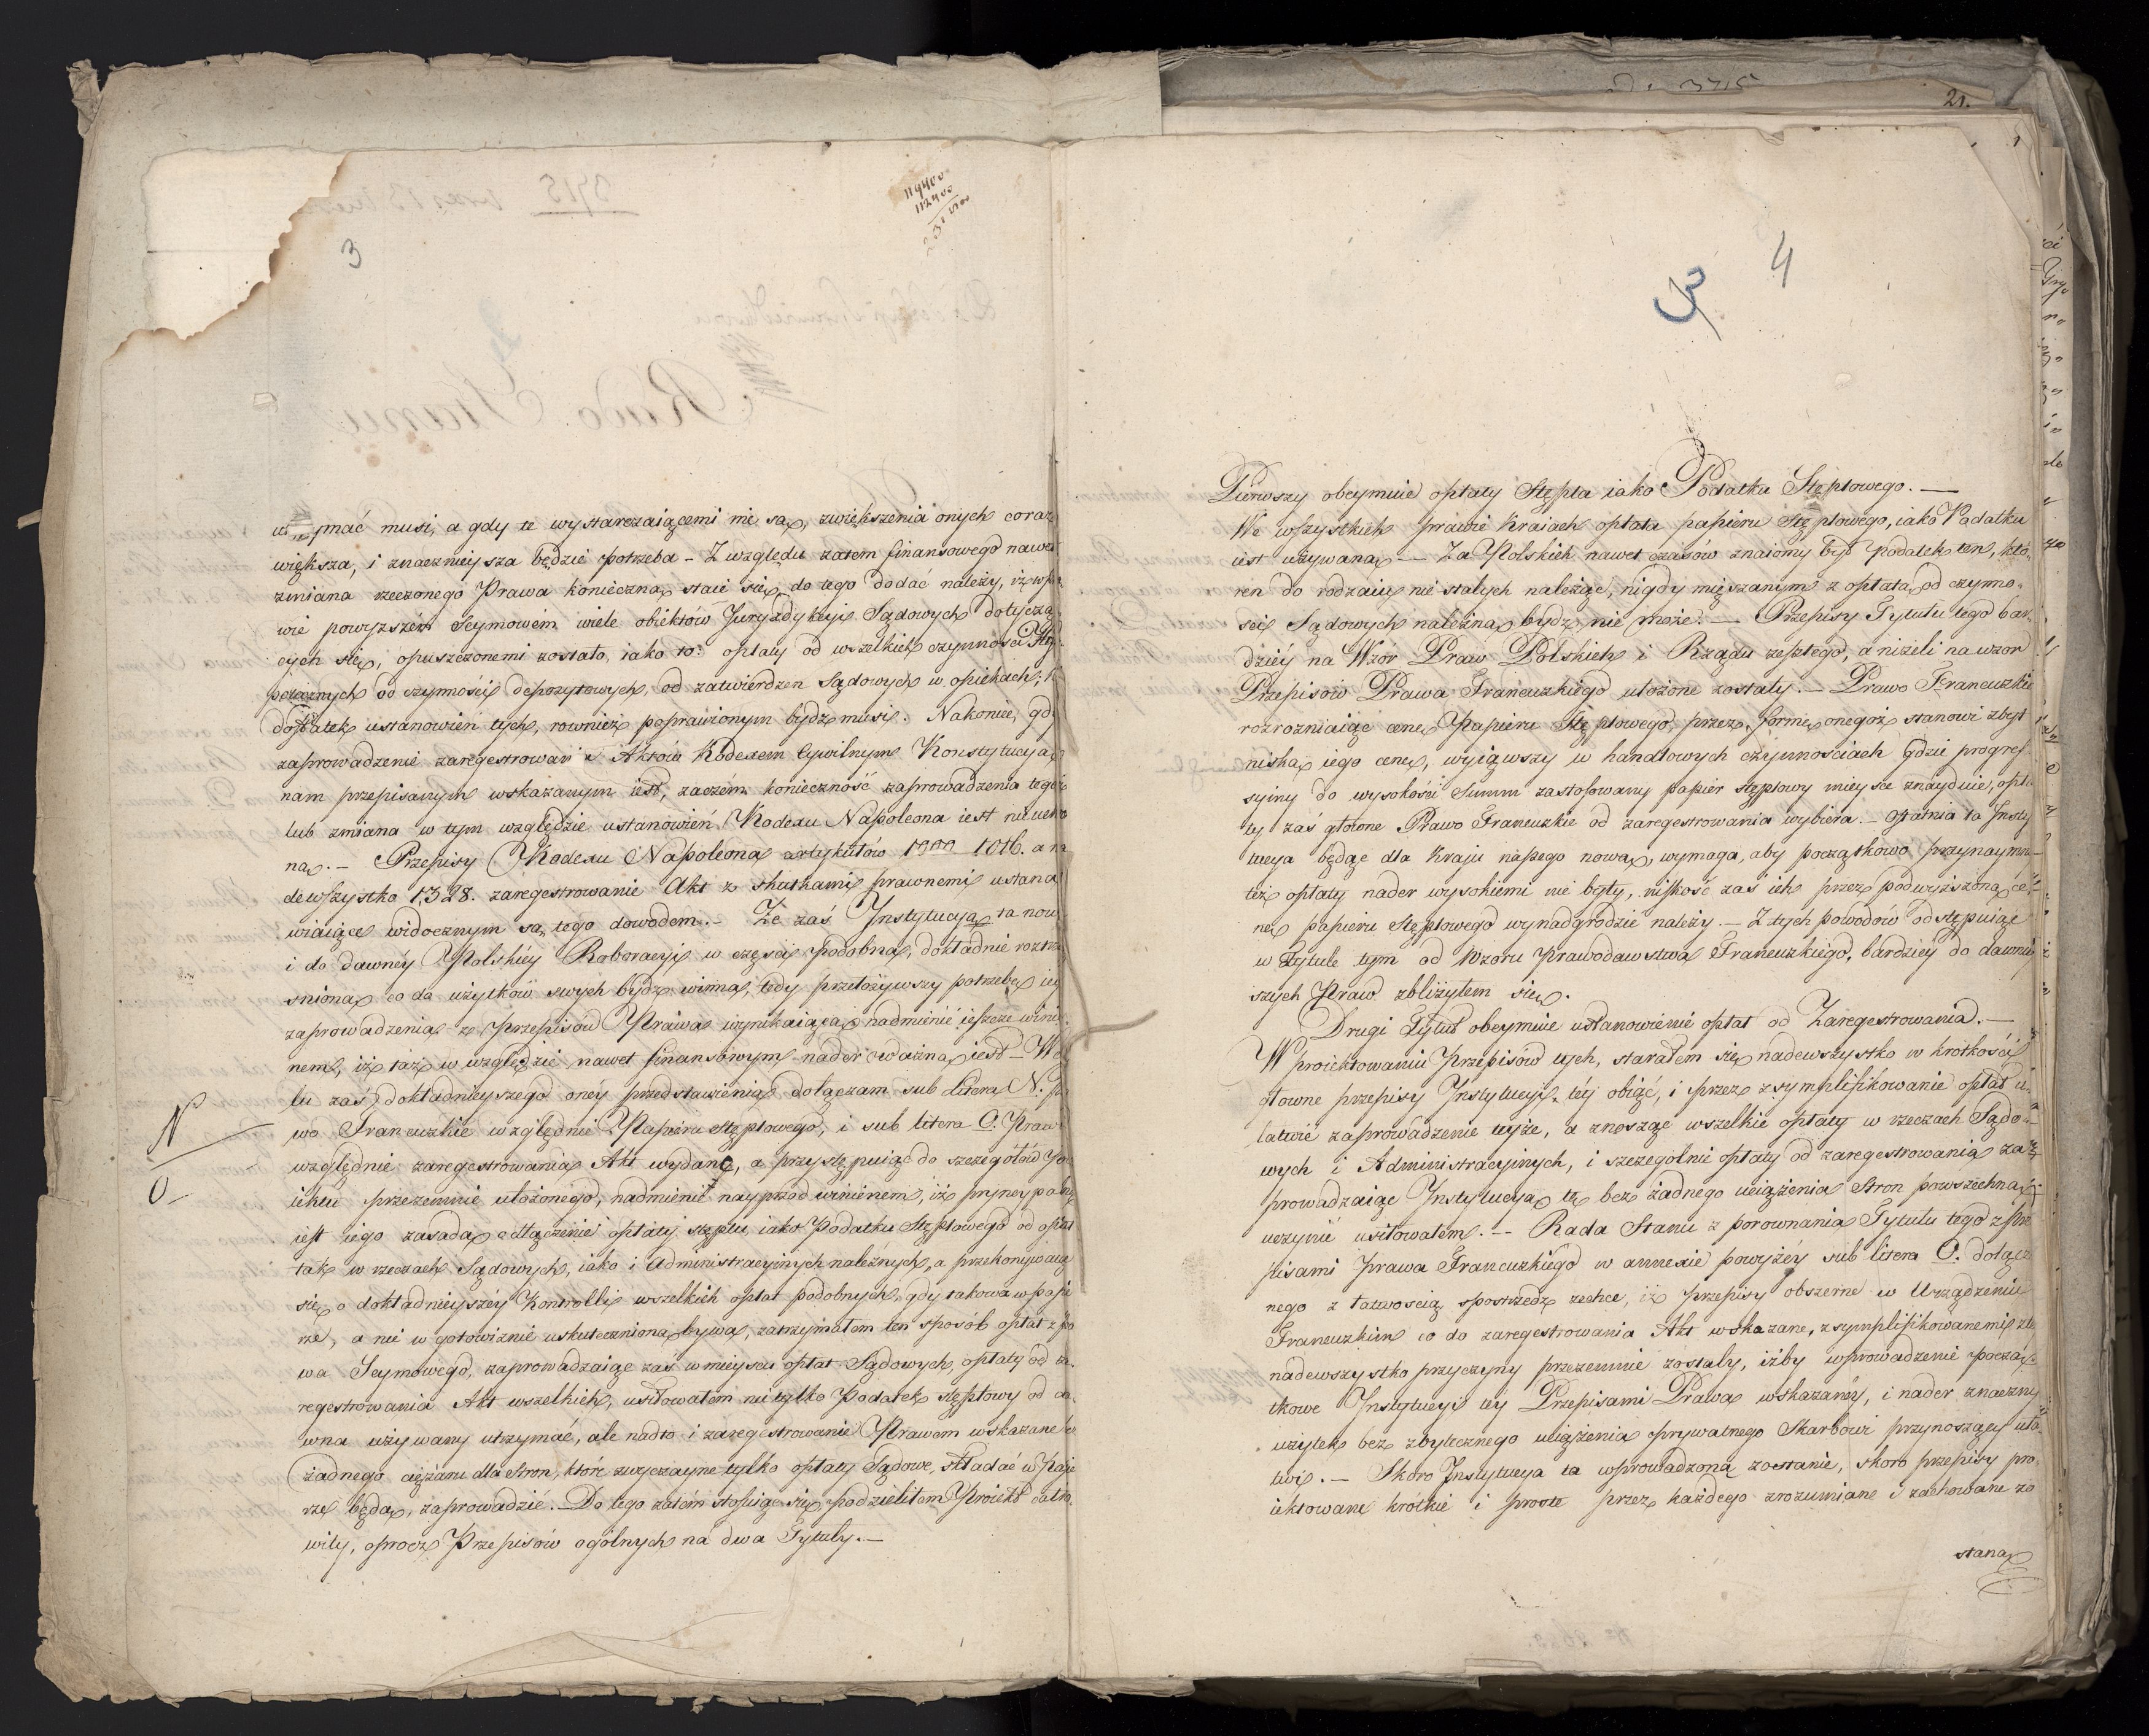 3
119400
112400
musi, a gdy te wystarczaiącemi nie są, zwiększenia onych coraz
większa, i znacznieysza będzie potrzeba – Z względu zatem finansowego nawet
zmiana rzeczonego Prawa konieczną staie się, do tego dodać należy, iż w pra
wie powyższém Seymowém wiele obiektów Juryzdykcyi Sądowych dotyczą
cych się, opuszczonemi zostało, iako to: opłaty od wszelkich czynności Hy
potecznych od czynności depozytowych, od zatwierdzen Sądowych w opiekach;
dostatek ustanowień tych, rownież poprawionym bydź musi. Nakoniec, gdy
zaprowadzenie zaregestrowań Aktów Kodexem Cywilnym Konstytucyą
nam przepisanym wskazanym iest, zaczém konieczność zaprowadzenia tegoż
lub zmiana w tym względzie ustanowień Kodexu Napoleona iest nieuchro
na. – Przepisy Kodexu Napoleona artykułów 1000 1016. a na
dewszystko 1328. zaregestrowanie Akt z skutkami prawnemi ustana
wiaiące widocznym są tego dowodem. – Że zaś Instytucya ta nowa
i do dawnéy Polskiéy Roboracyi w części podobna, dokładnie roztrz
sniona co do użytków swych bydź winna, tedy przełożywszy potrzebę iey
zaprowadzenia z przepisów Prawa wynikaiącą nadmienić ieszcze wini
nem, iż taż w względzie nawet finansowym nader ważną iest – W ce
lu zaś dokładnieyszego onéy przedstawienia dołączam sub Litera N. Pra
N
wo Francuzkie względnie Papieru Stęplowego, i sub litera O. Prawo
O –
względnie zaregestrowania Akt wydane, a przystępuiąc do szczegółów Pro
iektu przezemnie ułożonego, nadmienić nayprzód winienem, iż pryncypalną
iest iego zasadą odłączenie opłaty stęplu, iako Podatku Stęplowego od opłat
tak w rzeczach Sądowych, iako i administracyinych należnych, a przekonywaiąc
się o dokładnieyszéy Kontrolli wszelkich opłat podobnych, gdy takowa w papie
rze, a nie w gotowiznie uskuteczniona bywa, zatrzymałem ten sposób opłat z pra
wa Seymowego, zaprowadzaiąc zaś w mieyscu opłat Sądowych, opłaty od za
regestrowania Akt wszelkich, usiłowałem nie tylko Podatek stęplowy od da
wna używany utrzymać, ale nadto i zaregestrowanie Prawem wskazane bez
żadnego ciężaru dla Stron, które zwyczayne tylko opłaty Sądowe, składać w Papie
rze będą, zaprowadzić. Do tego zatém stosuiąc się podzieliłem Proiekt całko
wity, oprócz Przepisów ogólnych na dwa Tytuły. –
21.
3 4
Pierwszy obeymuie opłaty Stępla iako Podatku Stęplowego. –
We wszystkich prawie Kraiach opłata papieru Stęplowego, iako Podatku
iest używaną – Za Polskich nawet czasów znaiomy był podatek ten, któ
ren do rodzaiu nie stałych należąc, nigdy mięszanym z opłatą od czynno
ści Sądowych należną bydź nie może. – Przepisy Tytułu tego bar
dziéy na Wzór Praw Polskich i Rządu zeszłego, aniżeli na wzór
Przepisów Prawa Francuzkiego ułożone zostały. – Prawo Francuzkie
rozrozniaiąc cenę Papieru Stęplowego, przez formę onegoż stanowi zbyt
niską iego cenę, wyiąwszy w handlowych czynnościach gdzie progres
syiny do wysokości Summ zastosowany papier stęplowy mieysce znayduie, opła
ty zaś główne Prawo Francuzkie od zaregestrowania wybiera. – Ostatnia ta Insty
tucya będąc dla Kraju naszego nową, wymaga, aby początkowo przynaymniey
też opłaty nader wysokiemi nie były, niskość zaś ich przez podwyższoną ce
nę papieru Stęplowego wynadgrodzić należy. – Z tych powodów odstępuiąc
w Tytule tym od Wzoru Prawodawstwa Francuzkiego, bardziéy do dawniey
szych Praw zbliżyłem się.
Drugi Tytuł obeymuie ustanowienie opłat od Zaregestrowania. –
W proiektowaniu Przepisów tych, starałem się nadewszystko w krotkości
głowne przepisy Instytucyi téy obiąć, i przez zsymplifikowanie opłat u
łatwić zaprowadzenie teyże, a znosząc wszelkie opłaty w rzeczach Sądo
wych i Administracyinych, i szczególnie opłaty od zaregestrowania za
prowadzaiąc Instytucyą tę bez żadnego uciążenia Stron powszechną
uczynić usiłowałem. – Rada Stanu z porownania Tytułu tego z Prze
pisami Prawa Francuzkiego w annexie powyżéy sub litera O. dołączo
nego z łatwością spostrzedz zechce, iż przepisy obszerne w Urządzeniu
Francuzkim co do zaregestrowania Akt wskazane, zsymplifikowanemi z téy
nadewszystko przyczyny przezemnie zostały, iżby wprowadzenie począ
tkowe Instytucyi téy Przepisami Prawa wskazanéy, i nader znaczny
użytek bez zbytecznego uciążenia prywatnego Skarbowi przynoszącéy uła
twić. – Skoro Instytucya ta wprowadzoną zostanie, skoro przepisy pro
iektowane krótkie i proste przez każdego zrozumiane i zachowane zo
staną